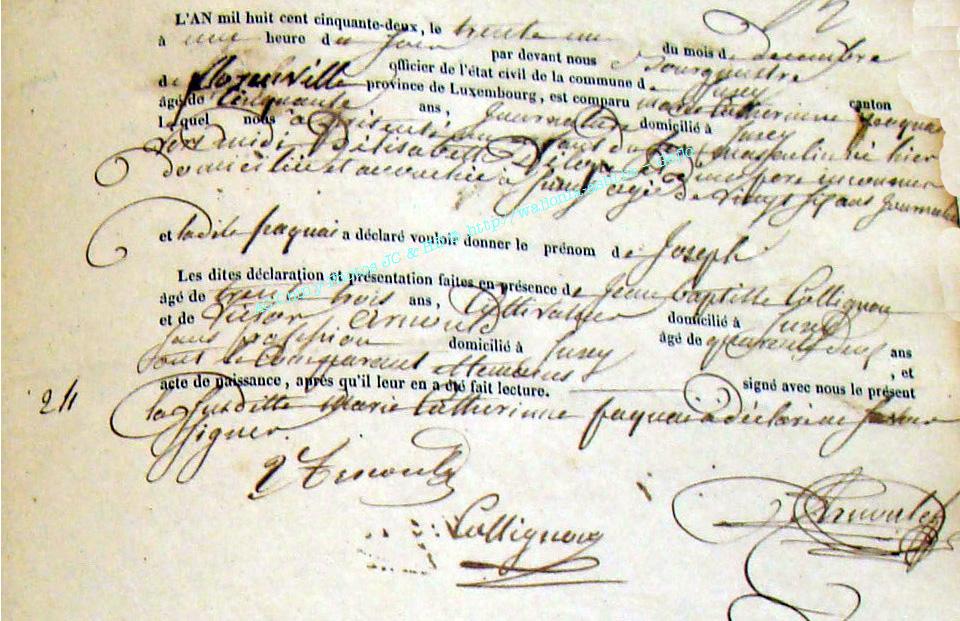 L'AN mil huit cent cinquante-deux, le trente un du mois de decembre
à une heure du Jour par devant nous
Officier de l'état civil de la commune de Jusey canton
de Florenville province de Luxembourg, est comparu marie Catherinne Jaquai
âgé de Cinquante ans, Journaliere domicilié à Jusey
Lequel nous a présenté un enfant du sexe masculin né hier
vers midi D'élisabeth et d'un pere inconnu
domiciliée et accouchée à Jusey agé de vingt six ans Journaliere
et ladite Jaquai a déclaré vouloir donner le prénom de Joseph
Les dites déclaration et présentation faites en présence de Jean baptiste Collignon
âgé de trente trois ans, Cultivateur domicilié à Jusey
et de Victor Arnould âgé de quarante deux ans
sans profession domicilié à Jusey , et
ont le comparant et temoins signé avec nous le présent
acte de naissance, après qu'il leur en a été fait lecture.
24
la Susditte Marie Catherinne Jaquai a déclaré ne savoir
Signer.
Arnould
Collignon
http://wallonia